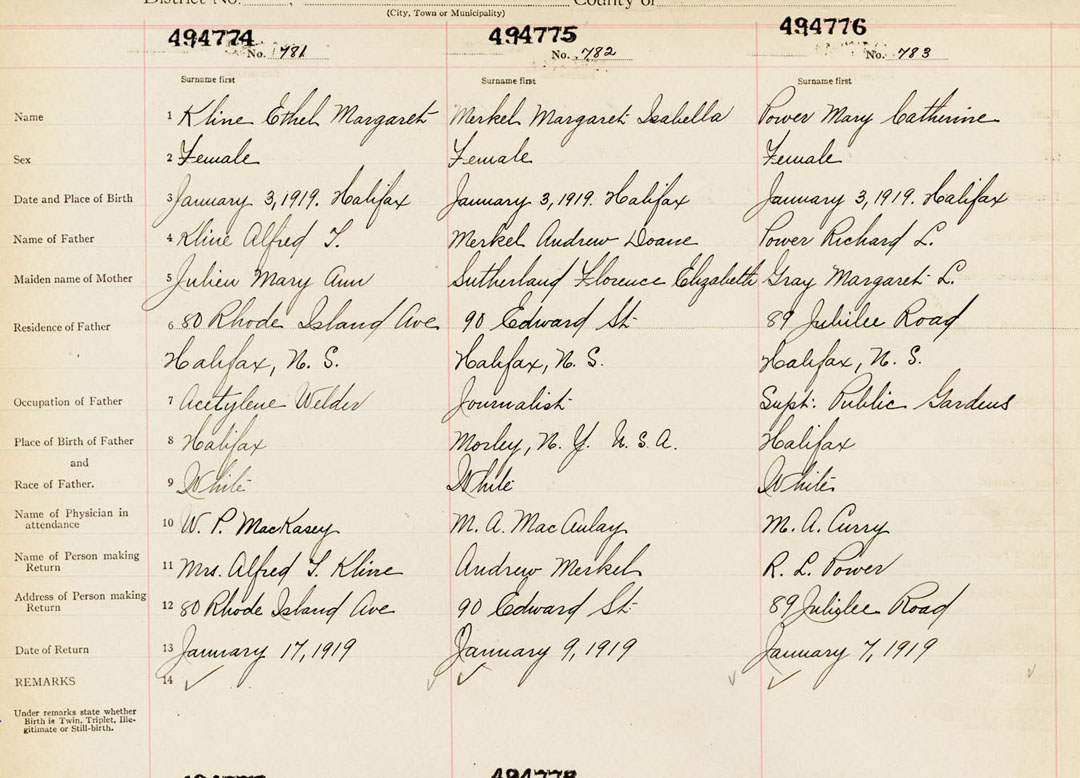 District No. County of
(City, Town or Municipality)
494774 494775 494776
No. 781 No. 782 No. 783
Surname first Surname first Surname first
Name 1 Kline Ethel Margaret Merkel Margaret Isabella Power Mary Catherine
Sex 2 Female Female Female
Date and Place of Birth 3 January 3, 1919. Halifax January 3, 1919. Halifax January 3, 1919. Halifax
Name of Father 4 Kline Alfred T. Merkel Andrew Doane Power Richard L.
Maiden name of Mother 5 Julien Mary Ann Sutherland Florence Elizabeth Gray Margaret L.
Residence of Father 6 80 Rhode Island Ave 90 Edward St 89 Jubilee Road
Halifax, N. S. Halifax, N. S. Halifax, N. S.
Occupation of Father 7 Acetylene Welder Journalist Supt. Public Gardens
Place of Birth of Father 8 Halifax Morley, N. Y. U. S. A. Halifax
and
Race of Father. 9 White White White
Name of Physician in
attendance 10 W. P. MacKasey M. A. MacAulay M. A. Curry
Name of Person making
Return 11 Mrs. Alfred T. Kline Andrew Merkel R. L. Power
Address of Person making
Return 12 80 Rhode Island Ave 90 Edward St 89 Jubilee Road
Date of Return 13 January 17, 1919 January 9, 1919 January 7, 1919
REMARKS 14
Under remarks state whether
Birth is Twin, Triplet, Ille-
gitimate or Still-birth.